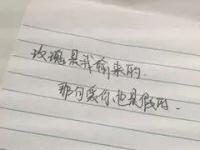 玫瑰是我偷来的.
那句爱你也是假的.